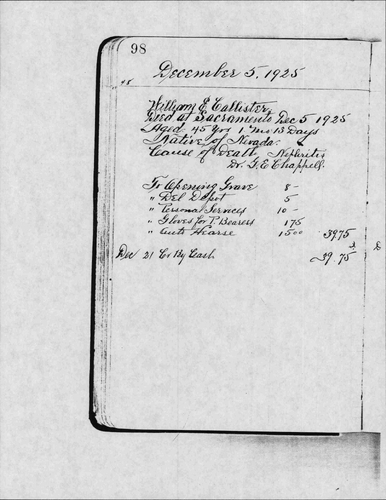 98
December 5, 1925
48
William E Callister
Died at Sacramento Dec 5 1925
Aged 45 Yrs 1 Mo 13 Days
Native of Nevada
Cause of Death Nephritis
Dr. G. E. Chappell.
To Opening Grave 8-
" Del Depot 5
" Personal Services 10-
" Gloves for P. Bearers 175
" Auto Hearse 1500 3975
Dec 21 Cr By Cash. 39.75